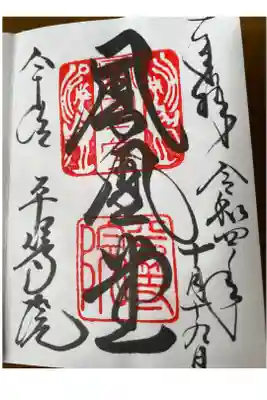 奉拝
令和四年
十月十九日
鳳凰堂
宇治 平等院